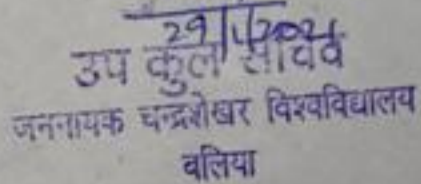 29/1/2021
उप कुल सचिव
जननायक चन्द्रशेखर विश्वविद्यालय
बलिया